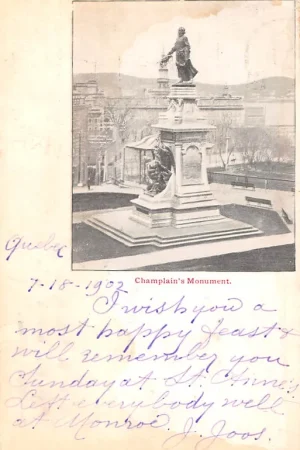 Champlain's Monument.
Quebec
7-18-1902
I wish you a
most happy feast &
will remember you
Sunday at St. Anne's
Left everybody well
at Monroe. J. Joos.